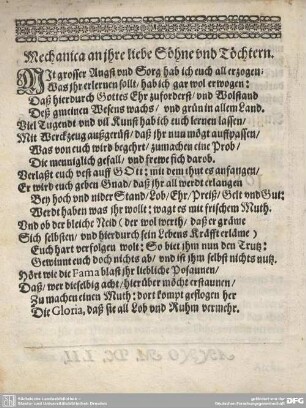 Mechanica an jhre liebe Söhne vnd Töchtern.
MIt grosser Angst vnd Sorg hab ich euch all erzogen:
Was jhr erlernen solt / hab ich gar wol erwogen:
Daß hierdurch Gottes Ehr zuforderst / vnd Wolstand
Deß gmeinen Wesens wachs / vnd grün in allem Land.
Viel Tugendt vnd vil Kunst hab ich euch lernen lassen /
Mit Werckzeug außgerüst / daß jhr nun mögt auffpassen /
Was von euch wird begehrt / zumachen eine Prob /
Die menniglich gefall / vnd frewe sich darob.
Verlaßt euch vest auff GOtt: mit dem thut es anfangen /
Er wird euch geben Gnad / daß jhr all werdt erlangen
Bey hoch vnd nider Stand / Lob / Ehr / Preiß / Gelt vnd Gut:
Werdt haben was jhr wolt: wagt es mit frischem Muth.
Vnd ob der bleiche Neid (der wol werth / daß er gäntz
Sich selbsten / vnd hierdurch sein Lebens Kräfft erläme)
Euch hart verfolgen wolt: So biet jhm nun den Trutz:
Gewinnt euch doch nichts ab / vnd ist jhm selbst nichts nutz.
Hört wie die Fama blast jhr liebliche Posaunen /
Daß / wer dieselbig acht / hierüber möcht erstaunen /
Zu machen einen Muth: dort kompt geflogen her
Die Gloria, daß sie all Lob vnd Ruhm vermehr.